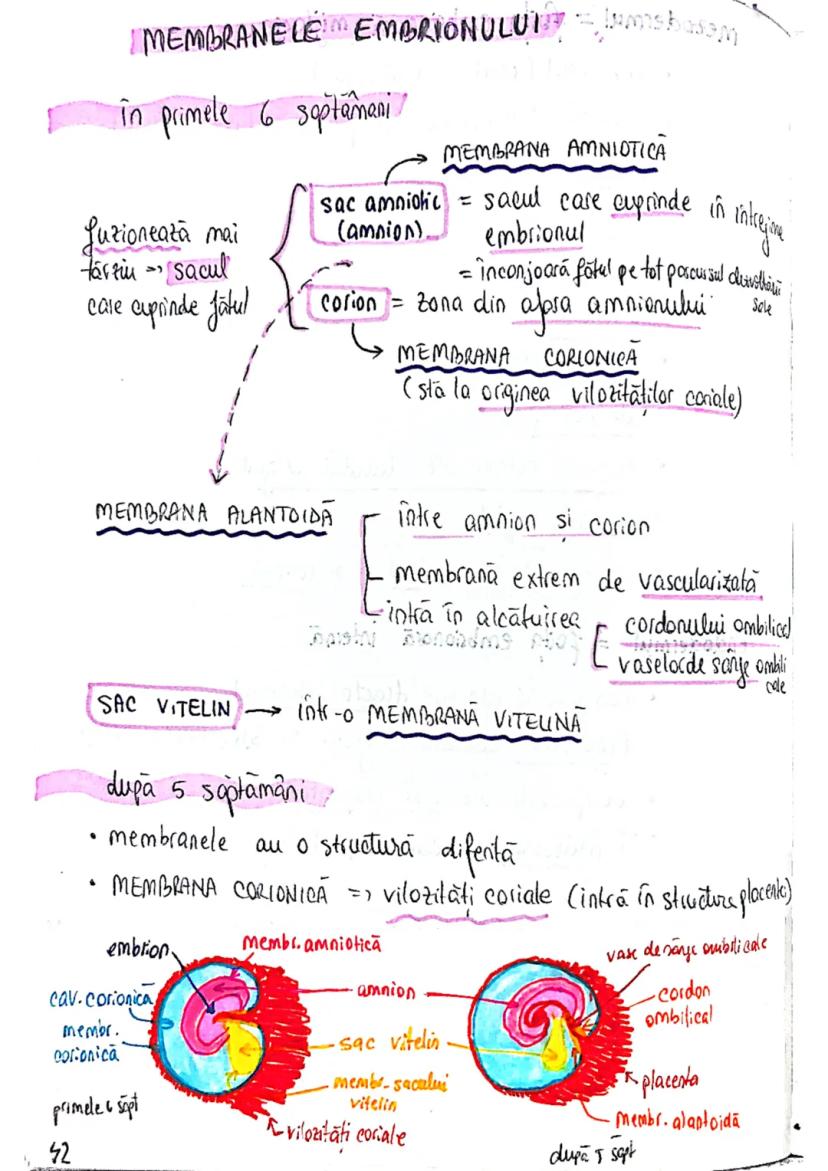 MEMBRANELE EMBRIONULUI
în primele 6 săptămâni
MEMBRANA AMNIOTICĂ
sac amniotic = sacul care cuprinde în întregime
(amnion) embrionul
fuzionează mai
târziu => sacul
care cuprinde fătul
= înconjoară fătul pe tot parcursul dezvoltării
sale
corion = zona din afara amnionului
MEMBRANA CORIONICĂ
(stă la originea vilozităților coriale)
MEMBRANA ALANTOIDĂ
între amnion și corion
membrană extrem de vascularizată
intră în alcătuirea
cordonului ombilical
vaselor de sânge ombili
cale
SAC VITELIN → într-o MEMBRANĂ VITELINĂ
după 5 săptămâni
• membranele au o structură difertă
• MEMBRANA CORIONICĂ => vilozități coriale (intră în structura placentei)
embrion
membr. amniotică
vase de sânge ombilicale
cav. corionică
amnion
cordon
ombilical
membr.
corionică
sac vitelin
membr. sacului
vitelin
placenta
primele 6 săpt
vilozități coriale
membr. alantoidă
după 5 săpt
42